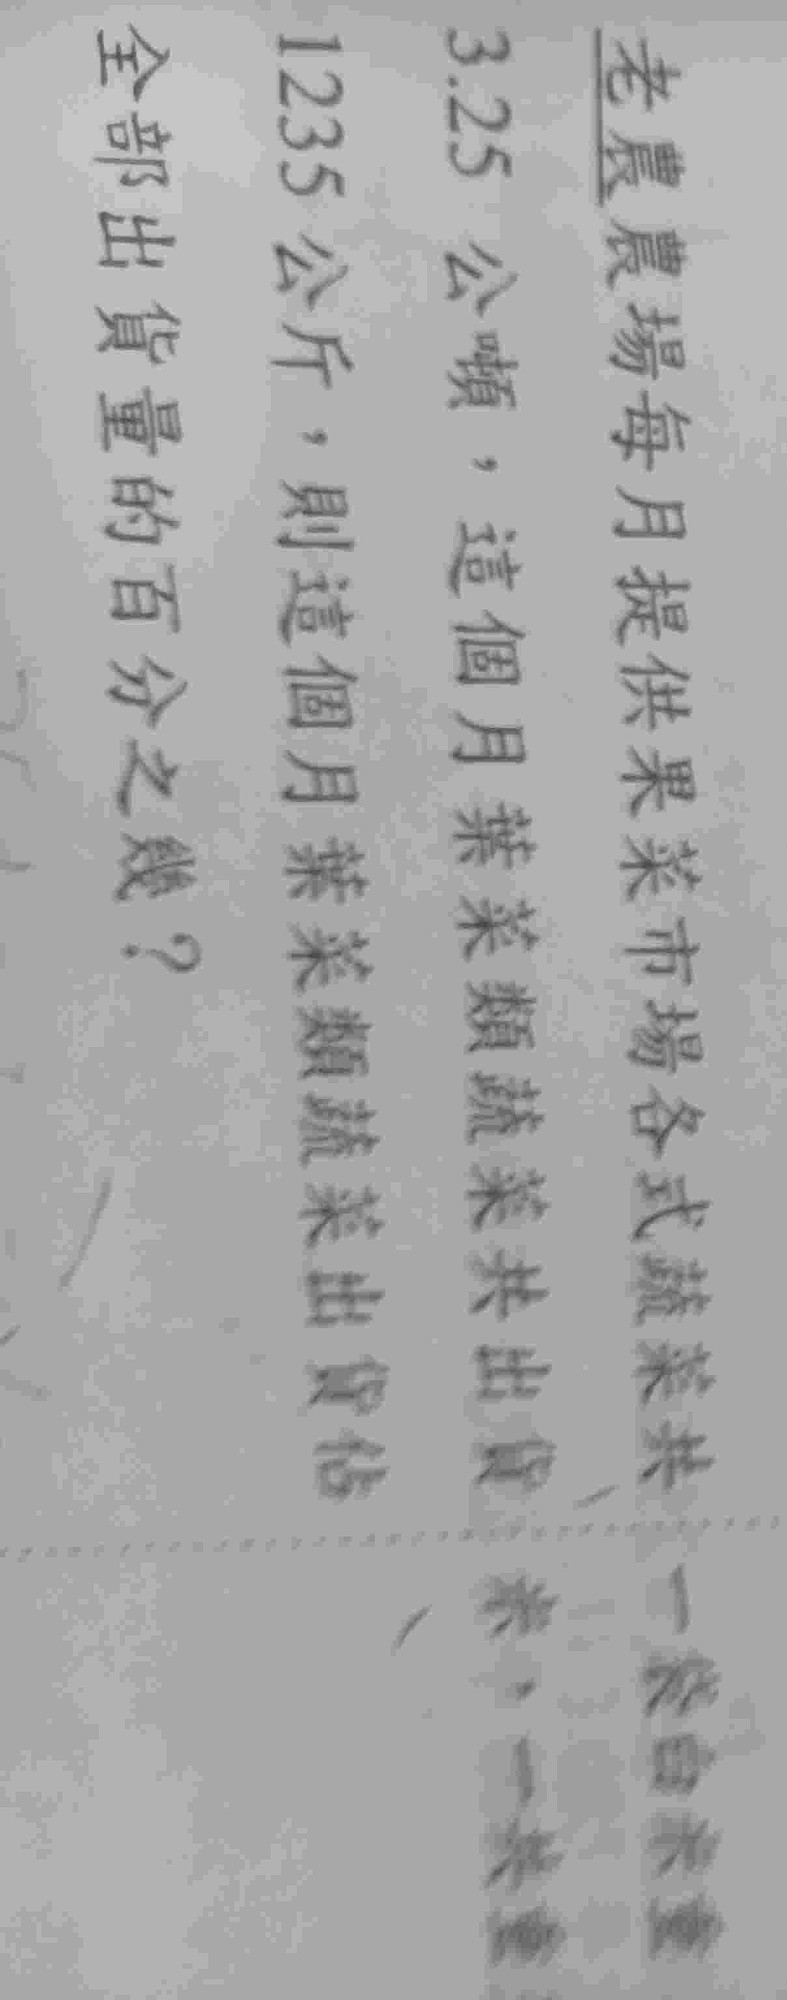 老農農場每月提供果菜市場各式蔬菜共
3.25 公噸，這個月葉菜類蔬菜共出貨
1235 公斤，則這個月葉菜類蔬菜出貨佔
全部出貨量的百分之幾？
一袋白米重
米，一共重